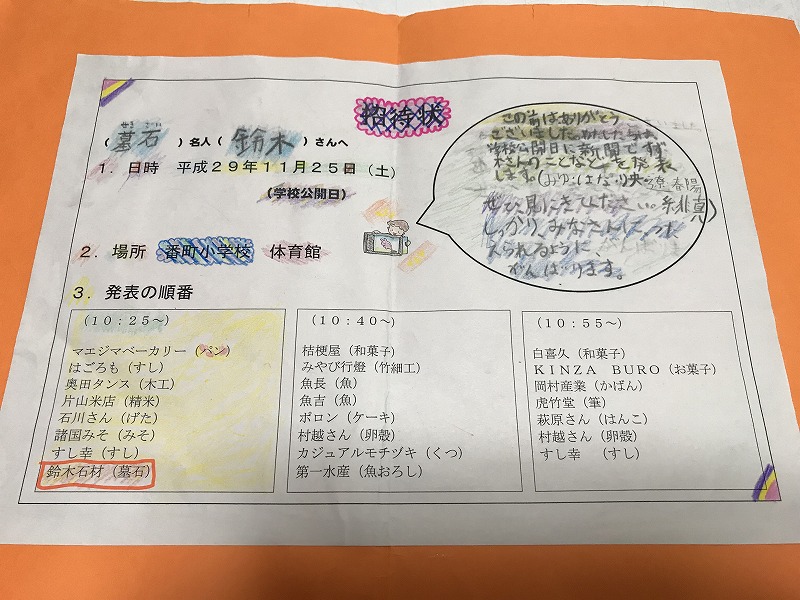 招待状
せき ざい
(墓石)名人(鈴木)さんへ
1．日時　平成29年11月25日（土）
（学校公開日）
2．場所　番町小学校　体育館
3．発表の順番
この前はありがとう
ございました。わたしたちは
学校公開日に新聞ですず
木さんのことなどを発表
します。(みゆ・はな・リ央・
春陽
ぜひ見にきてください。
しっかり、みなさんにつた
えられるように、
がんばります。
（10：25～）
マエジマベーカリー（パン）
はごろも（すし）
奥田タンス（木工）
片山米店（精米）
石川さん（げた）
諸国みそ（みそ）
すし幸（すし）
鈴木石材（墓石）
（10：40～）
桔梗屋（和菓子）
みやび行燈（竹細工）
魚長（魚）
魚吉（魚）
ポロン（ケーキ）
村越さん（卵殻）
カジュアルモチヅキ（くつ）
第一水産（魚おろし）
（10：55～）
白喜久（和菓子）
KINZA　BURO（お菓子）
岡村産業（かばん）
虎竹堂（筆）
萩原さん（はんこ）
村越さん（卵殻）
すし幸　（すし）